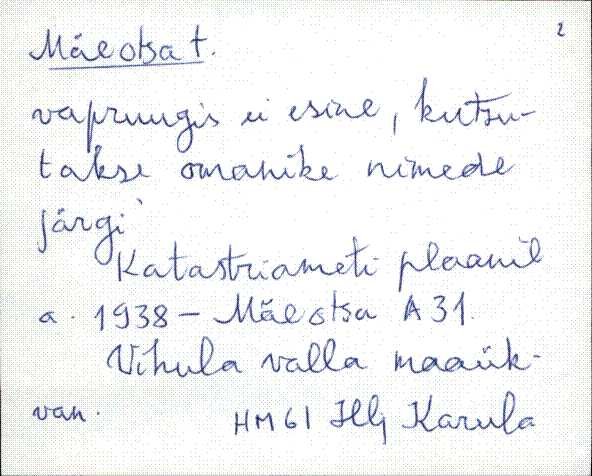 2
Mäeotsa t.
vapruugis ei esine, kutsu-
takse omanike nimede
järgi
Katastriameti plaanil
a. 1938 – Mäeotsa A 31.
Vihula valla maaük-
van.
HM 61 Hlj Karula